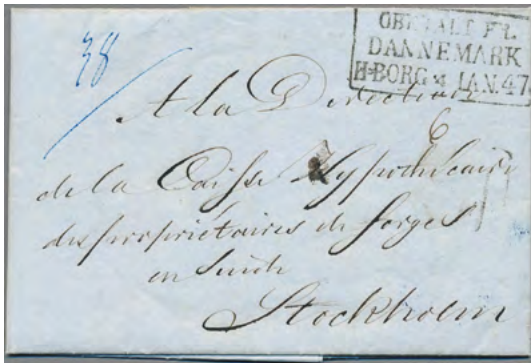 OBETALT FR.
DANNEMARK
H-BORG 4 JAN. 47.
38
A la Direction
6
de la Caisse Hypothécaire
des propriétaires de forges
en Suède
Stockholm